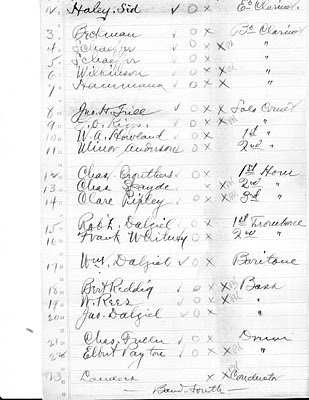 Haley, Sid ✓ O X Eb Clarinet
3 Beckman O X Bb Clarinet
4 Schaefer O X X "
5 Schaefer O X "
6 Wilkinson O X X "
7 X X "
8 Jas. H. ✓ O X Solo Cornet
9 O X "
10 W. A. Howland O X 1st "
11 Winor Anderson O X 2nd "
12 Chas. Crouthers O X 1st Horn
13 Chas X X 2nd "
14 Clare Ripley O X X 3rd "
15 Robt. Dalziel O X 1st Trombone
16 Frank Whitney O X 2nd "
17 Wm. Dalziel ✓ O X Baritone
18 Bert Reddig ✓ O X X Bass
19 W. Rees ✓ O X X "
20 Jas. Dalziel ✓ O X "
21 Chas. O X Drum
22 Elbert Payton O X X "
23 Landers X X Conductor
— Band - South —